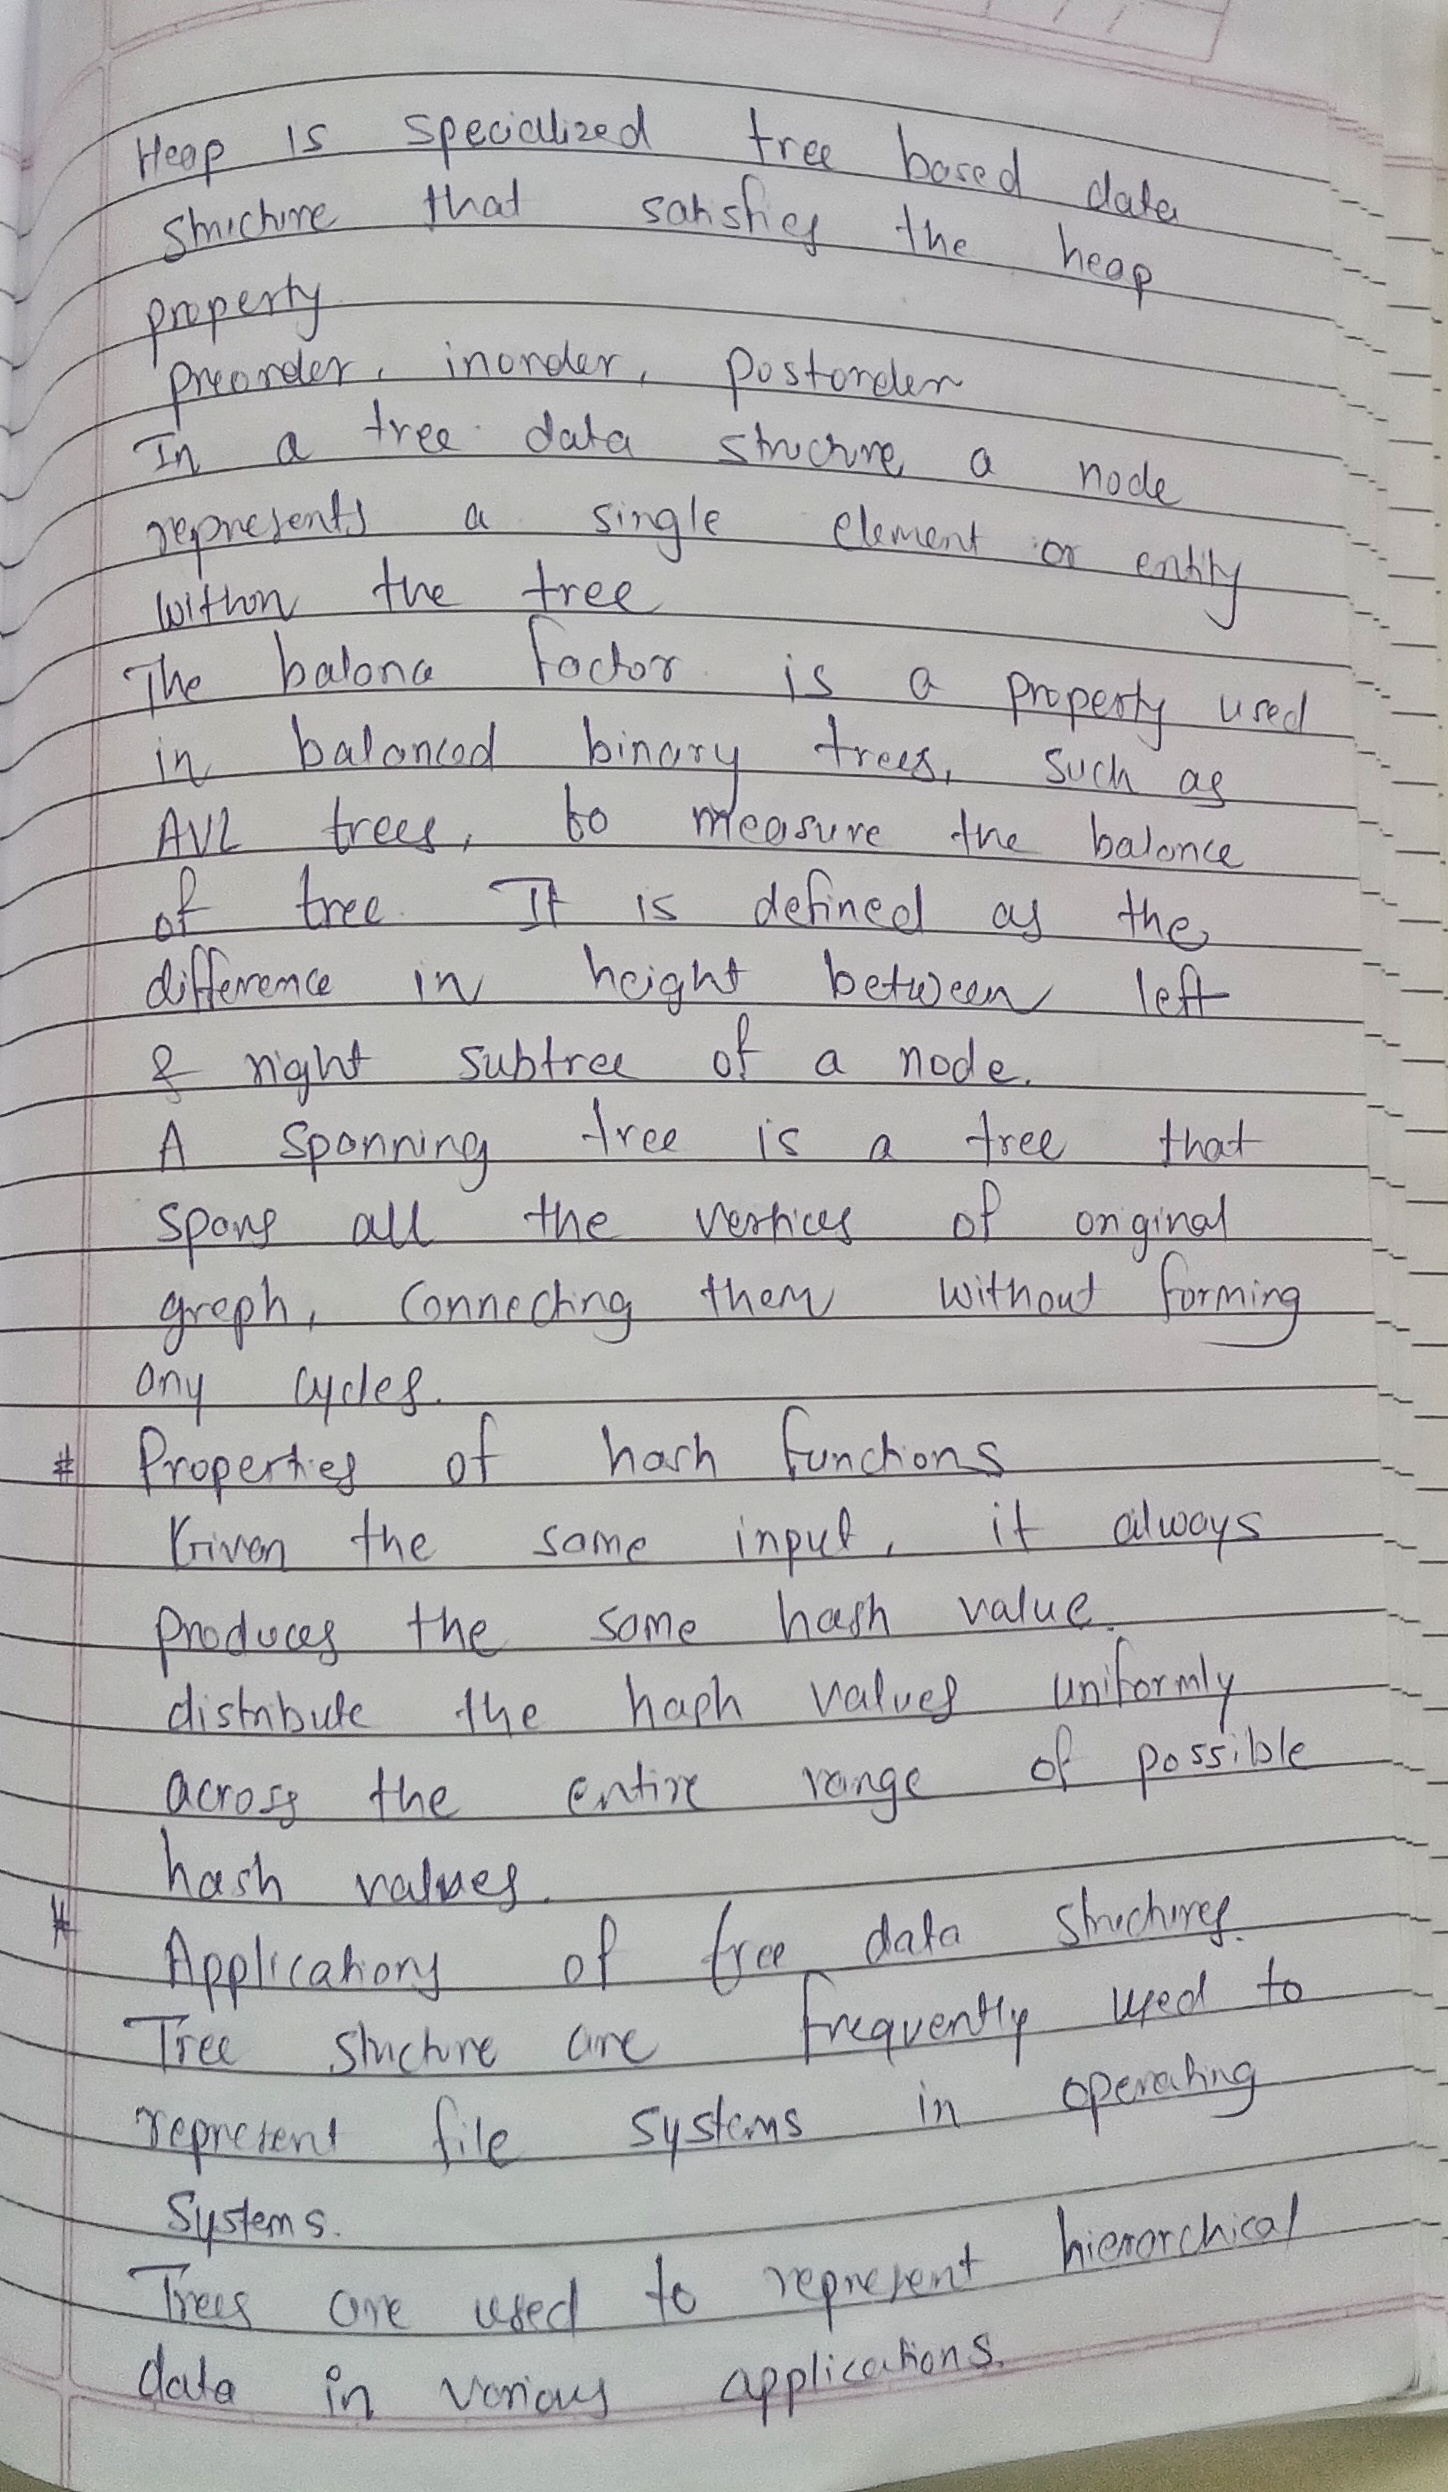 Heap is specialized tree based data
structure that satisfies the heap
property
preorder, inorder, postorder
In a tree data structure a node
represents a single element or entity
within the tree
The balance factor is a property used
in balanced binary trees, such as
AVL trees, to measure the balance
of tree. It is defined as the
difference in height between left
& right subtree of a node.
A spanning tree is a tree that
spans all the vertices of original
greph, connecting them without forming
any cycles.
# Properties of hash functions
Given the same input, it always
produces the same hash value.
distribute the hash values uniformly
across the entire range of possible
hash values.
# Applications of tree data structures.
Tree structure are frequently used to
represent file systems in operating
systems.
Trees are used to represent hierarchical
data in various applications.